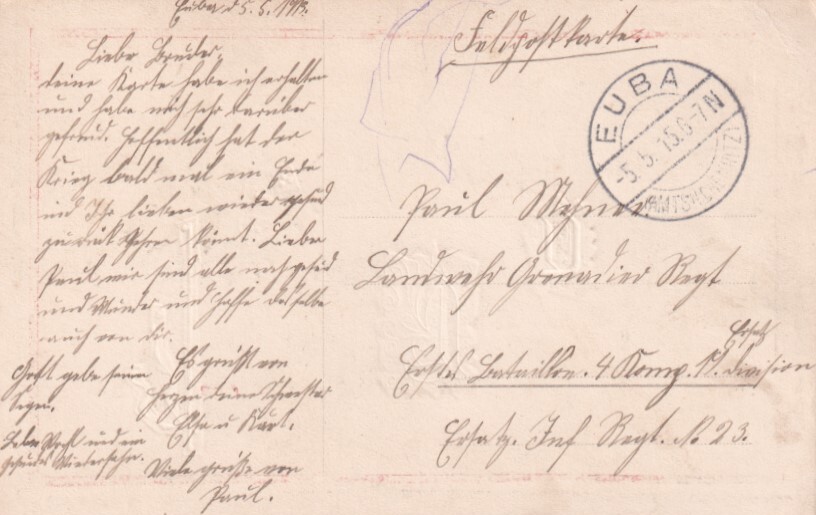 Euba d 5.5.1915.
Liebe Bruder,
deine Karte habe ich erhalten
und habe mich sehr darüber
gefreud. Hoffentlich hat der
Krieg bald mal ein Ende
und Ihr lieben wieder gesund
zurück kehren könnt. Lieber
Paul wir sind alle noch gesund
und Munder und hoffe dasselbe
auch von dir.
Es grüsst von
Herzen deine Schwester
Elsa u Kurt.
Viele grüsse von
Paul.
Gott gebe seinen
Segen.
Lebe Wohl und ein
gesundes Wiedersehn.
Feldpostkarte.
EUBA
-5.5.15.6-7N
(AMTSH. CHEMNITZ)
Paul Mehner
Landwehr Grenadier Regt
Erstes Bataillon. 4 Komp. 19. Ersatz division
Ersatz. Inf Regt. No 23.